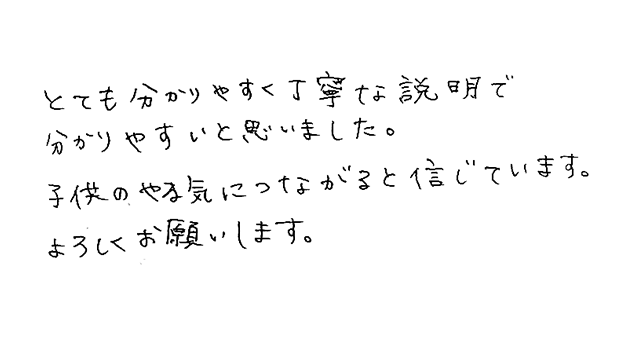 とても分かりやすく丁寧な説明で
分かりやすいと思いました。
子供のやる気につながると信じています。
よろしくお願いします。